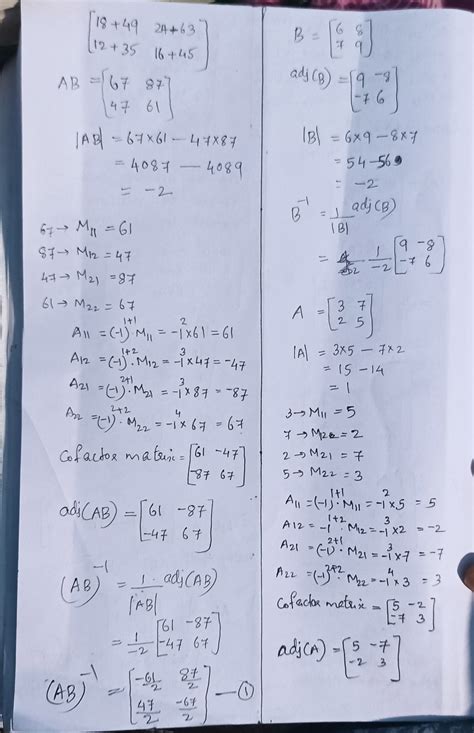 [18+49 24+63
12+35 16+45]
AB = [67 87
47 61]
|AB| = 67×61 — 47×87
= 4087 — 4089
= -2
67 → M11 = 61
87 → M12 = 47
47 → M21 = 87
61 → M22 = 67
A11 = (-1)^1+1 . M11 = -1^2 ×61 = 61
A12 = (-1)^1+2 . M12 = -1^3 ×47 = -47
A21 = (-1)^2+1 . M21 = -1^3 ×87 = -87
A22 = (-1)^2+2 . M22 = -1^4 ×67 = 67
Cofactor matrix = [61 -47
-87 67]
adj(AB) = [61 -87
-47 67]
(AB)^-1 = 1/|AB| . adj(AB)
= 1/-2 [61 -87
-47 67]
(AB)^-1 = [-61/2 87/2
47/2 -67/2] — ①
B = [6 8
7 9]
adj(B) = [9 -8
-7 6]
|B| = 6×9 — 8×7
= 54 - 56
= -2
B^-1 = 1/|B| adj(B)
= 1/-2 [9 -8
-7 6]
A = [3 7
2 5]
|A| = 3×5 — 7×2
= 15 - 14
= 1
3 → M11 = 5
7 → M12 = 2
2 → M21 = 7
5 → M22 = 3
A11 = (-1)^1+1 . M11 = -1^2 ×5 = 5
A12 = -1^1+2 . M12 = -1^3 ×2 = -2
A21 = (-1)^2+1 . M21 = -1^3 ×7 = -7
A22 = (-1)^2+2 . M22 = -1^4 ×3 = 3
Cofactor matrix = [5 -2
-7 3]
adj(A) = [5 -7
-2 3]